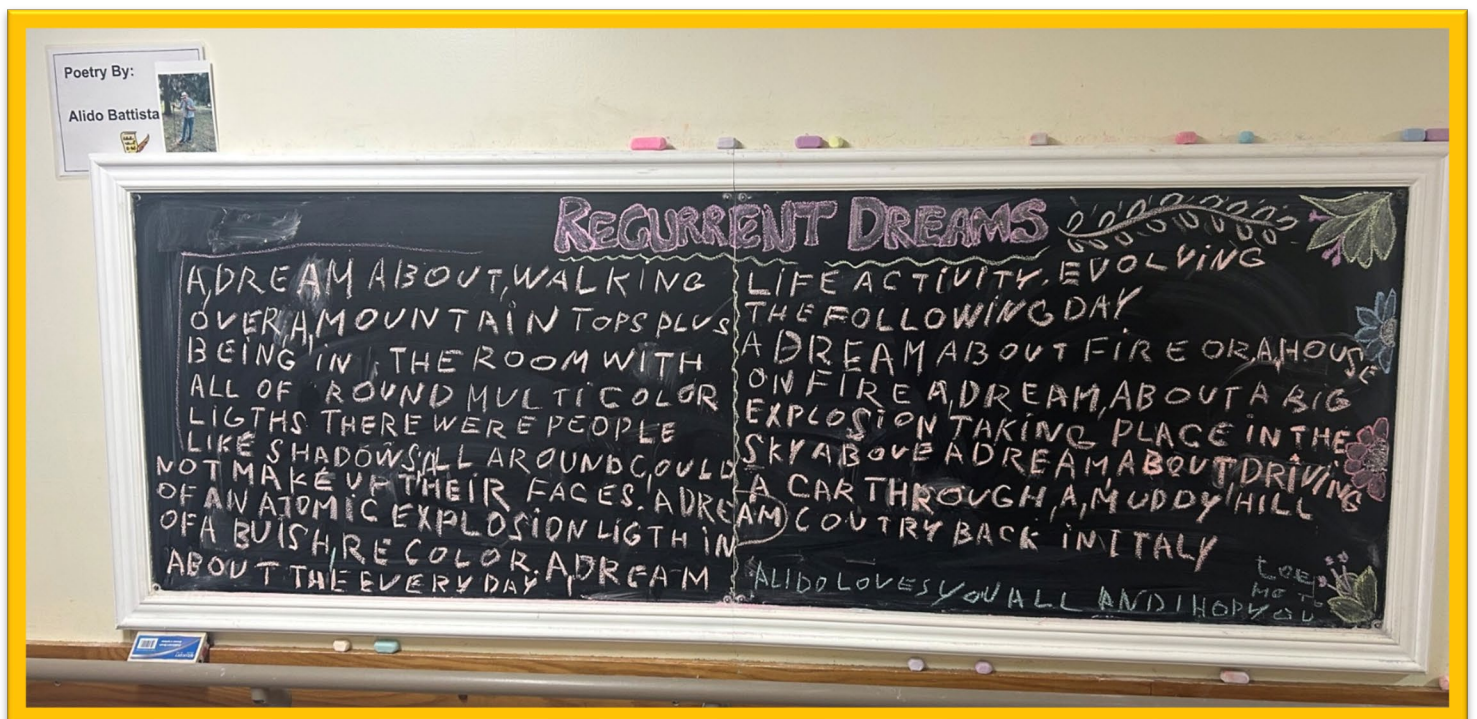 Poetry By:
Alido Battista
RECURRENT DREAMS
A,DREAM ABOUT,WALKING
OVER,A,MOUNTAIN TOPS PLUS
BEING IN THE ROOM WITH
ALL OF ROUND MULTICOLOR
LIGTHS THERE WERE PEOPLE
LIKE SHADOWS,ALL AROUND COULD
NOT MAKE UP THEIR FACES. A DREAM
OF AN ATOMIC EXPLOSION LIGTH IN
OF A BUISH,RE COLOR. A,DREAM
ABOUT THE EVERYDAY
LIFE ACTIVITY. EVOLVING
THE FOLLOWING DAY
A DREAM ABOUT FIRE OR,A,HOUSE
ON FIRE A,DREAM,ABOUT A BIG
EXPLOSION TAKING PLACE IN THE
SKY ABOVE A DREAM,ABOUT,DRIVING
A CAR THROUGH,A,MUDDY HILL
COUTRY BACK IN ITALY
ALIDO LOVES YOU ALL AND I HOP YOU